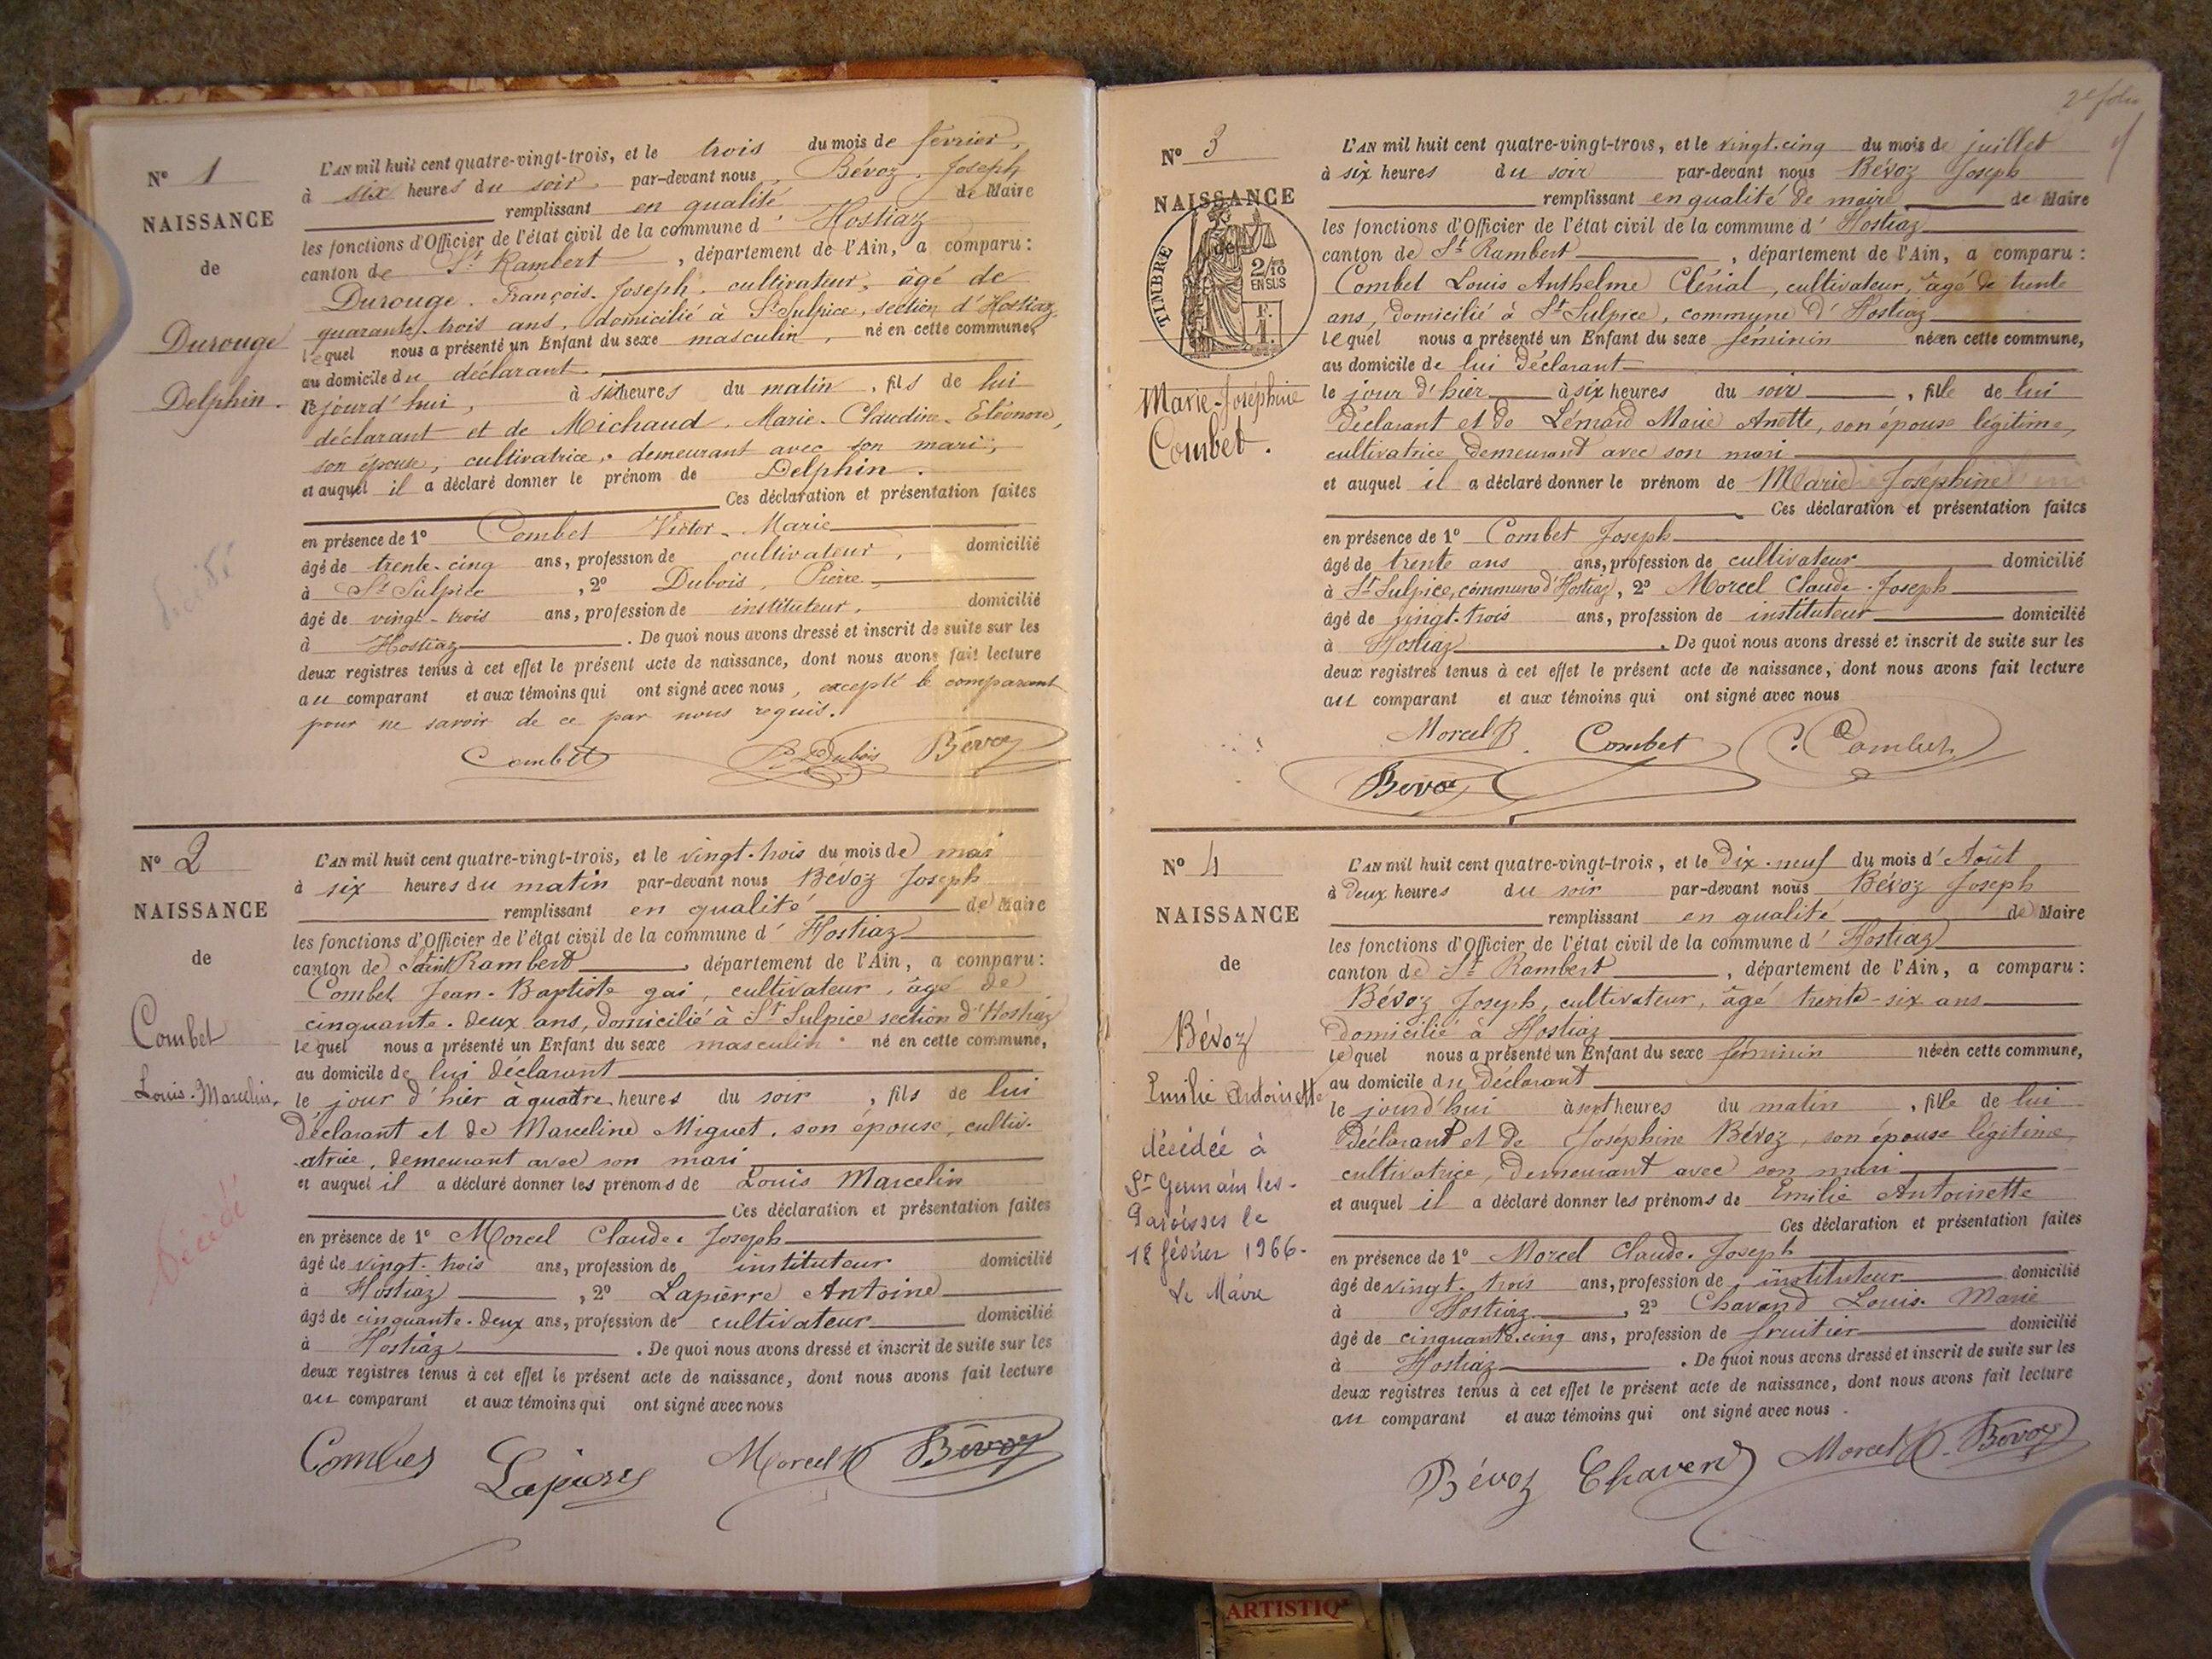 N° 1
NAISSANCE
de
Durouge
Delphin.
L'AN mil huit cent quatre-vingt-trois, et le trois du mois de février,
à six heures du soir, par-devant nous, Bévoz, Joseph
remplissant en qualité de Maire
les fonctions d'Officier de l'état civil de la commune d' Hostiaz
canton de St Rambert, département de l'Ain, a comparu:
Durouge, François-Joseph, cultivateur, âgé de
quarante-trois ans, domicilié à St Sulpice, section d'Hostiaz,
lequel nous a présenté un Enfant du sexe masculin, né en cette commune,
au domicile du déclarant.
le jourd'hui, à six heures du matin, fils de lui
déclarant et de Michaud, Marie-Claudine-Eléonore,
son épouse, cultivatrice, demeurant avec son mari;
et auquel il a déclaré donner le prénom de Delphin.
Ces déclaration et présentation faites
en présence de 1° Combet Victor-Marie
âgé de trente-cinq ans, profession de cultivateur, domicilié
à St Sulpice, 2° Dubois, Pierre
âgé de vingt-trois ans, profession de instituteur, domicilié
à Hostiaz. De quoi nous avons dressé et inscrit de suite sur les
deux registres tenus à cet effet le présent acte de naissance, dont nous avons fait lecture
au comparant et aux témoins qui ont signé avec nous, excepté le comparant
pour ne savoir de ce par nous requis.
Combet P. Dubois Bévoz
N° 2
NAISSANCE
de
Combet
Louis-Marcelin.
Décédé
L'AN mil huit cent quatre-vingt-trois, et le vingt-trois du mois de mai
à six heures du matin par-devant nous Bévoz Joseph
remplissant en qualité de Maire
les fonctions d'Officier de l'état civil de la commune d' Hostiaz
canton de Saint Rambert, département de l'Ain, a comparu:
Combet Jean-Baptiste gai, cultivateur, âgé de
cinquante-deux ans, domicilié à St Sulpice section d'Hostiaz
lequel nous a présenté un Enfant du sexe masculin né en cette commune,
au domicile de lui déclarant
le jour d'hier à quatre heures du soir, fils de lui
déclarant et de Marceline Miguet, son épouse, cultiv-
atrice, demeurant avec son mari
et auquel il a déclaré donner les prénoms de Louis Marcelin
Ces déclaration et présentation faites
en présence de 1° Morcel Claude-Joseph
âgé de vingt-trois ans, profession de instituteur domicilié
à Hostiaz, 2° Lapierre Antoine
âgé de cinquante-deux ans, profession de cultivateur domicilié
à Hostiaz. De quoi nous avons dressé et inscrit de suite sur les
deux registres tenus à cet effet le présent acte de naissance, dont nous avons fait lecture
au comparant et aux témoins qui ont signé avec nous
Combet Lapierre Morcel Bévoz
2e folio
N° 3
NAISSANCE
de
TIMBRE
2/10
EN SUS
F.
1.
Marie-Joséphine
Combet.
L'AN mil huit cent quatre-vingt-trois, et le vingt-cinq du mois de juillet
à six heures du soir par-devant nous Bévoz Joseph
remplissant en qualité de maire de Maire
les fonctions d'Officier de l'état civil de la commune d' Hostiaz
canton de St Rambert, département de l'Ain, a comparu:
Combet Louis Anthelme Clérial, cultivateur, âgé de trente
ans, domicilié à St Sulpice, commune d'Hostiaz
lequel nous a présenté un Enfant du sexe féminin née en cette commune,
au domicile de lui déclarant
le jour d'hier à six heures du soir, fille de lui
déclarant et de Lémard Marie Anette, son épouse légitime,
cultivatrice demeurant avec son mari
et auquel il a déclaré donner le prénom de Marie Joséphine
Ces déclaration et présentation faites
en présence de 1° Combet Joseph
âgé de trente ans ans, profession de cultivateur domicilié
à St Sulpice, commune d'Hostiaz, 2° Morcel Claude-Joseph
âgé de vingt-trois ans, profession de instituteur domicilié
à Hostiaz. De quoi nous avons dressé et inscrit de suite sur les
deux registres tenus à cet effet le présent acte de naissance, dont nous avons fait lecture
au comparant et aux témoins qui ont signé avec nous
Morcel Combet C. Combet
Bévoz
N° 4
NAISSANCE
de
Bévoz
Emilie Antoinette
décédée à
St Germain les-
Paroisses le
18 février 1966.
Le Maire
L'AN mil huit cent quatre-vingt-trois, et le Dix-neuf du mois d'Août
à deux heures du soir par-devant nous Bévoz Joseph
remplissant en qualité de Maire
les fonctions d'Officier de l'état civil de la commune d' Hostiaz
canton de St Rambert, département de l'Ain, a comparu:
Bévoz Joseph, cultivateur, âgé trente-six ans
domicilié à Hostiaz
lequel nous a présenté un Enfant du sexe féminin née en cette commune,
au domicile du déclarant
le jourd'hui à sept heures du matin, fille de lui
déclarant et de Joséphine Bévoz, son épouse légitime
cultivatrice, demeurant avec son mari
et auquel il a déclaré donner les prénoms de Emilie Antoinette
Ces déclaration et présentation faites
en présence de 1° Morcel Claude-Joseph
âgé de vingt-trois ans, profession de instituteur domicilié
à Hostiaz, 2° Chavand Louis-Marie
âgé de cinquante-cinq ans, profession de fruitier domicilié
à Hostiaz. De quoi nous avons dressé et inscrit de suite sur les
deux registres tenus à cet effet le présent acte de naissance, dont nous avons fait lecture
au comparant et aux témoins qui ont signé avec nous.
Bévoz Chavand Morcel Bévoz
ARTISTIQ